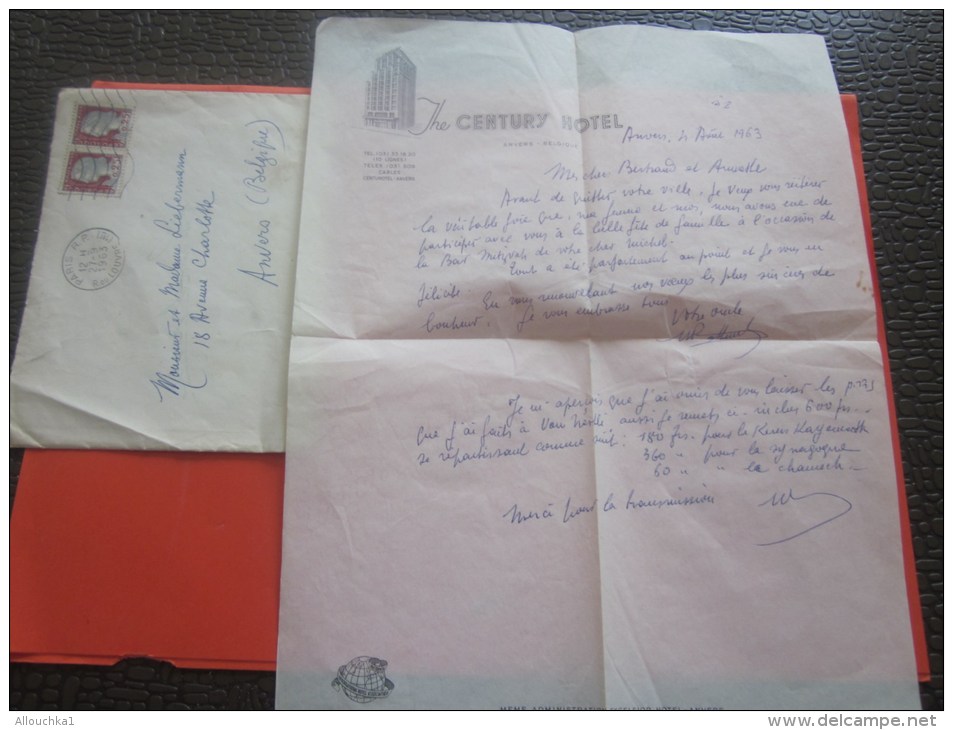 Monsieur et Madame Liebermann
18 Avenue Charlotte
Anvers (Belgique)
PARIS
1963
0,25
0,25
The CENTURY HOTEL
ANVERS - BELGIQUE
Anvers, 4 Août 1963
Mes chers Bertrand et Annette
Avant de quitter votre ville, je veux vous réitérer
la véritable joie que, ma femme et moi, nous avons eue de
participer avec vous à la belle fête de famille à l'occasion de
la Bar Mitzvah de votre cher Michel.
Tout a été parfaitement au point et je vous en
félicite. En vous renouvelant nos vœux les plus sincères de
bonheur, je vous embrasse tous
Votre oncle
Je m'aperçois que j'ai omis de vous laisser les
que j'ai faits à aussi je remets ci-inclus 600 frs.
se répartissant comme suit: 180 frs. pour le Keren Kayemeth
360 " pour la synagogue
60 " " le chamech
Merci pour la transmission
MEME ADMINISTRATION EXCELSIOR HOTEL - ANVERS
Allouchka1
http://www.delcampe.net